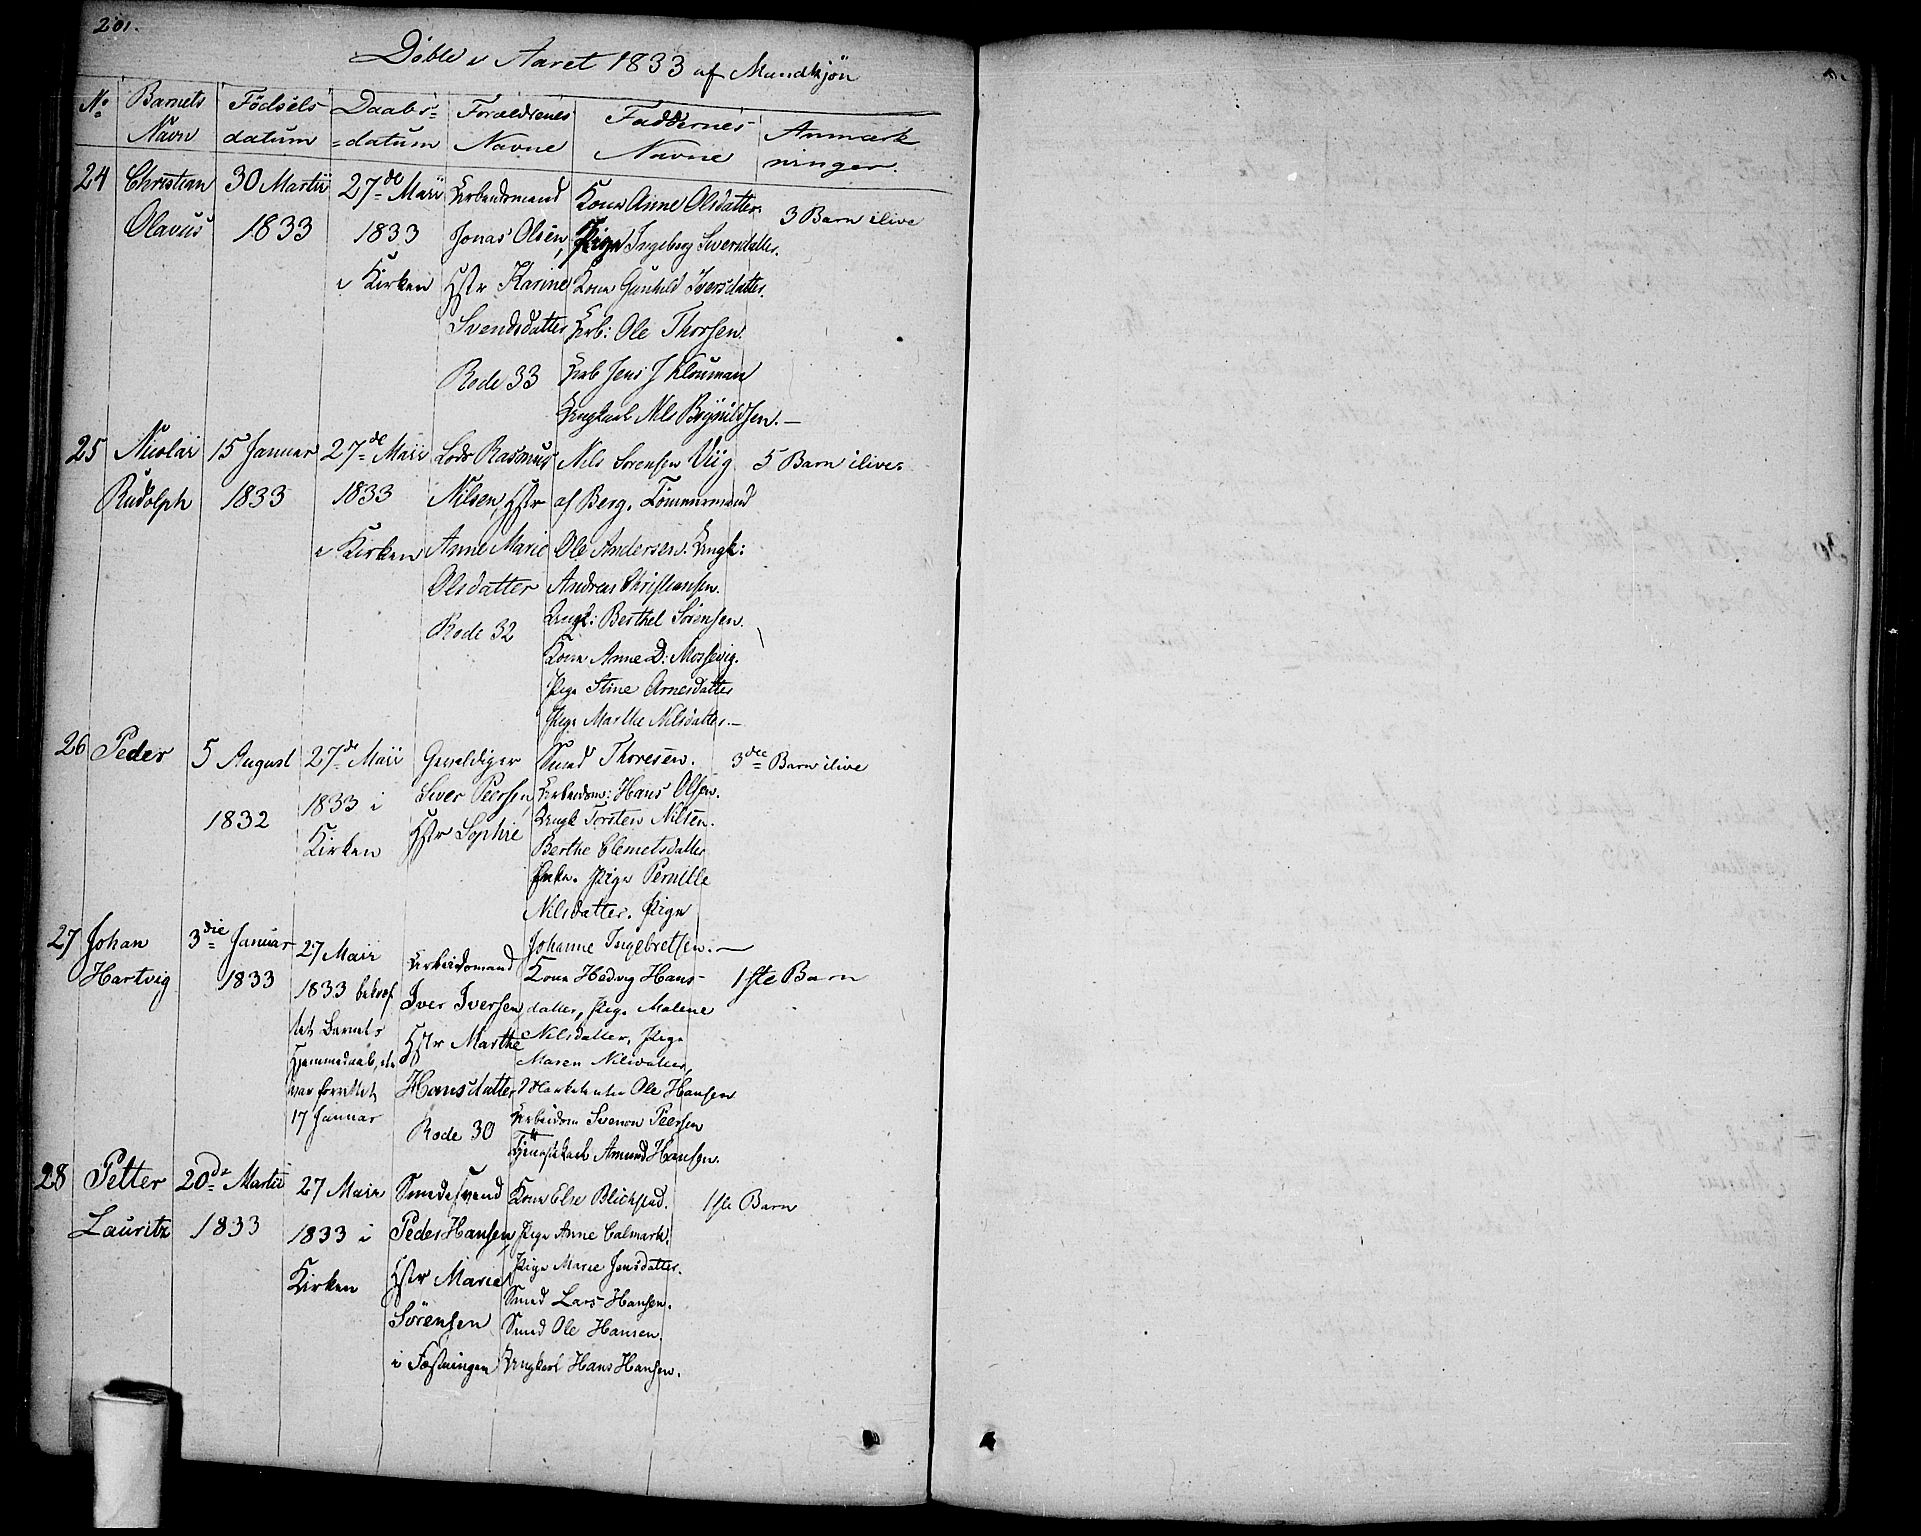 201.
Døbte i Aaret 1833 af Mandkjön
No Barnets Navn Fødsels datum Daabs= =datum Forældrenes Navne Faddernes Navne Anmærk ninger.
24 Christian Olavus
30 Martii 1833
27de Maii 1833 i Kirken
Arbeidsmand
Jonas Olsen,
Hstr Karine
Svendsdatter
Rode 33
Kone Anne Olsdatter.
Pige Ingeborg Sversdatter.
Kone Gunhild Iversdatter.
Arb: Ole Thorsen.
Arb Jens J Klouman
Ungkarl Nils Brynildsen.—
3 Barn ilive
25 Nicolai Rudolph
15 Januar 1833
27de Maii 1833 i Kirken
Lods Rasmus
Nilsen, Hstr
Anne Marie
Olsdatter
Rode 32
Nils Sorensen Viig
af Berg. Tömmermand
Ole Andersen. Ungk:
Andreas Christiansen.
Ungk: Berthel Sörensen.
Kone Anne D: Mossevig.
Pige Stine Arnesdatter
Pige Marthe Nilsdatter.—
5 Barn ilive.
26 Peder
5 August 1832
27de Maii 1833 i Kirken
Gevaldiger
Siver Peersen,
Hstr Sophie
Smed Thoresen.
Arbeidsm: Hans Olsen.
Ungk Torsten Nilsen.
Berthe Clemetsdatter
Enke. Pige Pernille
Nilsdatter. Pige
Johanne Ingebretsen.—
3die Barn ilive
27 Johan Hartvig
3die Januar 1833
27 Maii
1833 bekræf
tet Barnets
Hjemmedaab, der
var forrettet
17 Januar
Arbeidsmand
Iver Iversen
Hstr Marthe
Hansdatter
Rode 30
Kone Hedvig Hans-
datter, Pige Malene
Nilsdatter, Pige
Maren Nilsdatter,
Marketenter Ole Hansen
Arbeidsm Svenon Peersen
Tjenestkarl Amund Hansen.
1ste Barn
28 Petter Lauritz
20de Martii 1833
27 Maii 1833 i Kirken
Smedesvend
Peder Hansen,
Hstr Marie
Sörensen
i Fæstningen
Kone Else Blichstad.
Pige Anne Calmark.
Pige Marie Jensdatter.
Smed Lars Hansen.
Smed Ole Hansen.
Ungkarl Hans Hansen.
1ste Barn